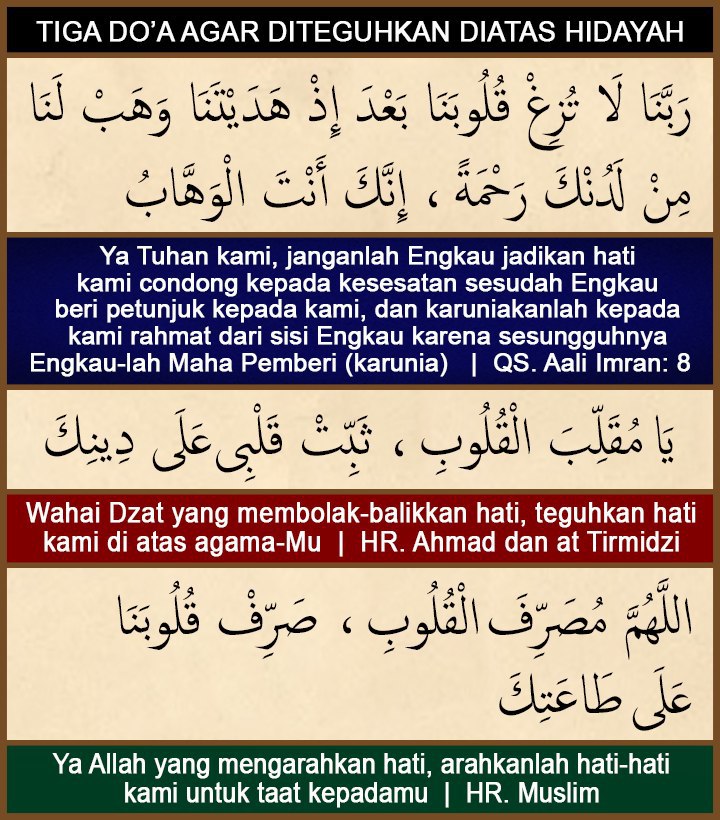 TIGA DO’A AGAR DITEGUHKAN DIATAS HIDAYAH
رَبَّنَا لَا تُزِغْ قُلُوبَنَا بَعْدَ إِذْ هَدَيْتَنَا وَهَبْ لَنَا
مِنْ لَدُنْكَ رَحْمَةً ، إِنَّكَ أَنْتَ الْوَهَّابُ
Ya Tuhan kami, janganlah Engkau jadikan hati
kami condong kepada kesesatan sesudah Engkau
beri petunjuk kepada kami, dan karuniakanlah kepada
kami rahmat dari sisi Engkau karena sesungguhnya
Engkau-lah Maha Pemberi (karunia) | QS. Aali Imran: 8
يَا مُقَلِّبَ الْقُلُوبِ ، ثَبِّتْ قَلْبِى عَلَى دِينِكَ
Wahai Dzat yang membolak-balikkan hati, teguhkan hati
kami di atas agama-Mu | HR. Ahmad dan at Tirmidzi
اللَّهُمَّ مُصَرِّفَ الْقُلُوبِ ، صَرِّفْ قُلُوبَنَا
عَلَى طَاعَتِكَ
Ya Allah yang mengarahkan hati, arahkanlah hati-hati
kami untuk taat kepadamu | HR. Muslim